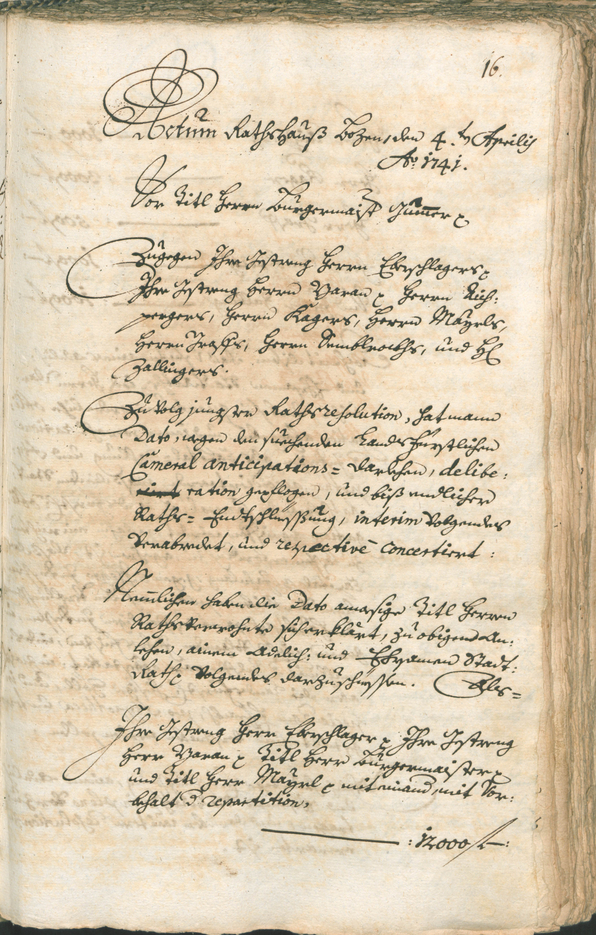 16.
Actum Rathshauß Bozen, den 4.ten Aprilis
Ao. 1741.
Vor Titl Herrn Burgermaist Gummer p
Zugegen Ihro Gestreng Herrn Eberschlagers p
Ihro Gestreng Herrn Zaran p Herrn
pergers, Herrn Kagers, Herrn Mayrls,
Herrn Herrn und H:
Zallingers.
Zu volg jüngsten Rathsresolution, hat mann
Dato, wegen den suechenden Landsfürstlichen
Cameral anticipations= darlehen, delibe:
ration gepflogen, und biß endlicher
Raths= Endtschliessung, interim volgendes
verabredet, und respective concertiert:
Nemblichen haben die Dato anwesige Titl Herrn
Rathsverwohnte sich erklärt, zu obigem An:
lehen, ainem Adelich: und Ehrsamen Stadt:
Rath p volgendes darzuschiessen. Als=
Ihro Gestreng Herr Eberschlager p Ihro Gestreng
Herr Zaran p Titl Herr Burgermaister p
und Titl Herr Mayrl p mit einand, mit Vor:
behalt d repartition,
: 12000 f: